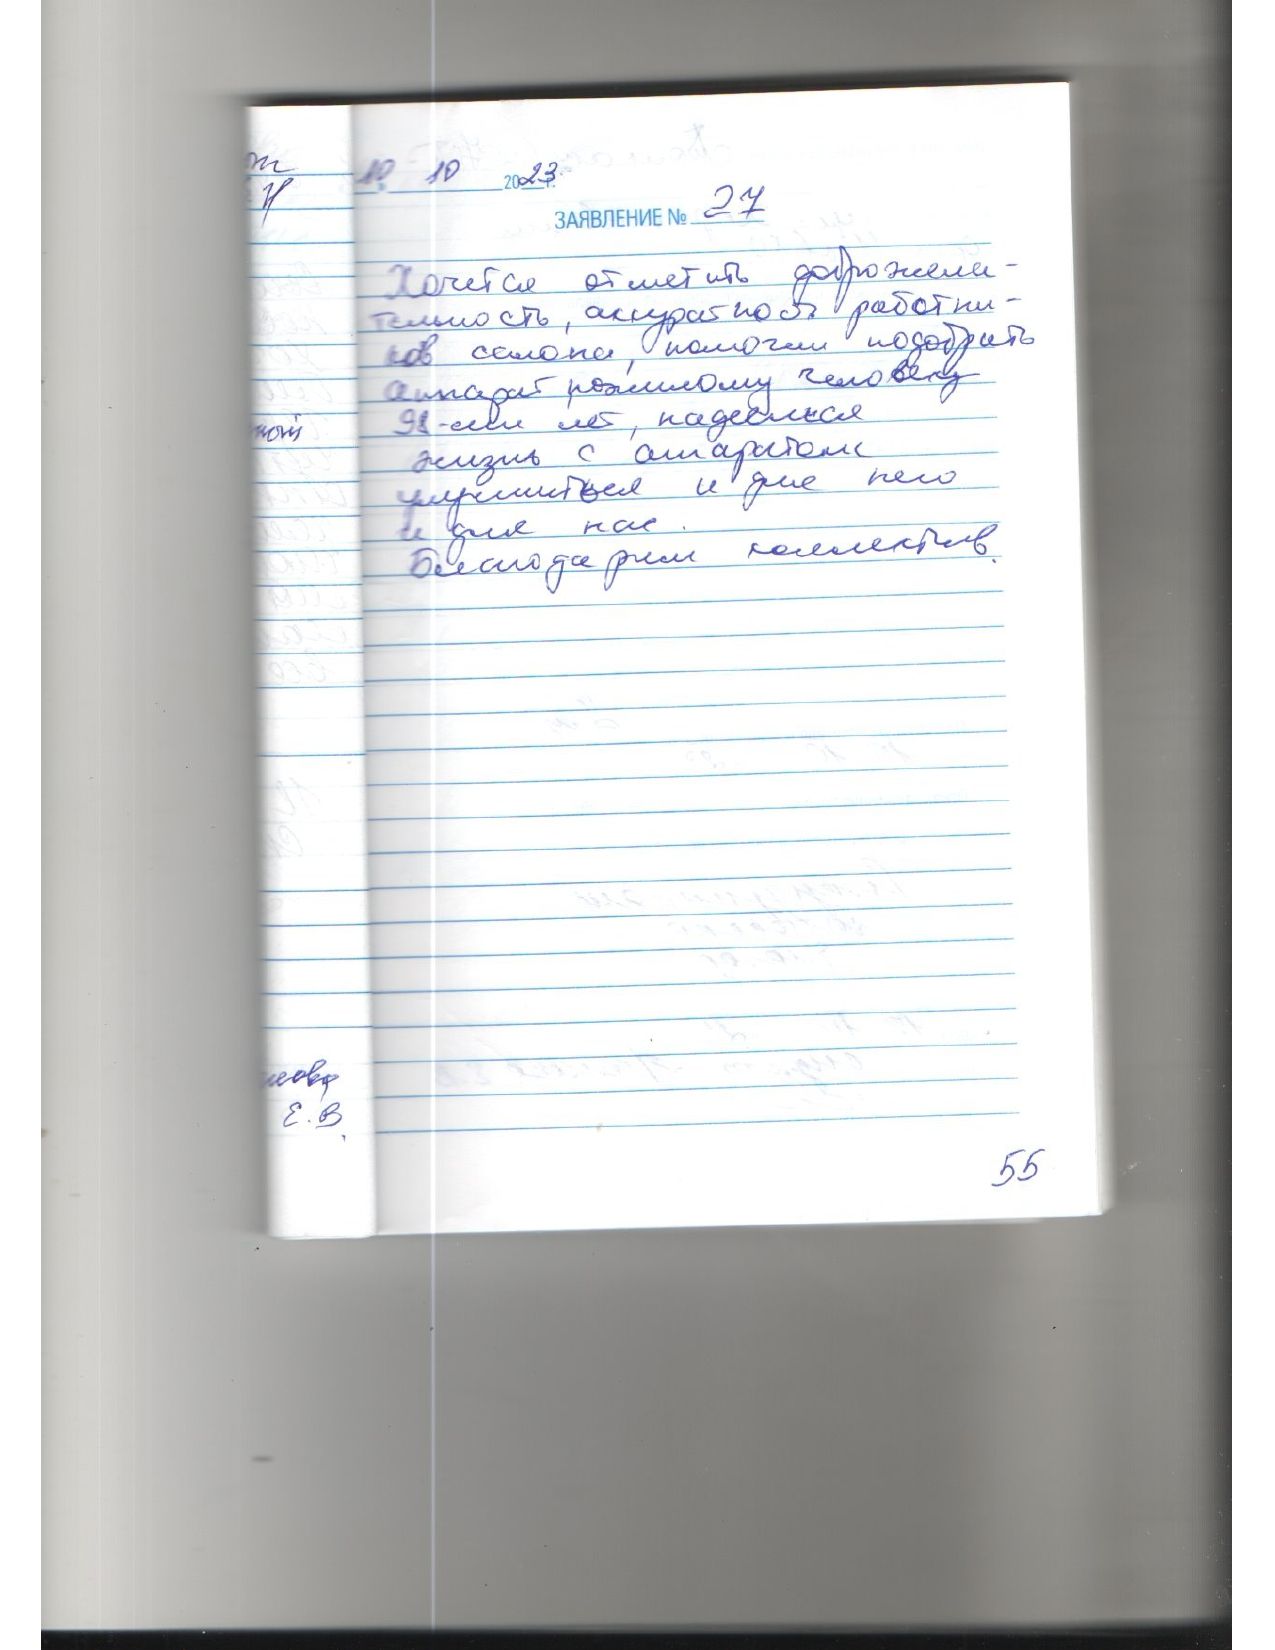 10 10 2023 г.
ЗАЯВЛЕНИЕ № 27
Хочется отметить доброжела-
тельность, аккуратность работни-
ков салона, помогли подобрать
аппарат пожилому человеку
98-ми лет, надеемся
жизнь с аппаратом
улучшиться и для него
и для нас.
Благодарим коллектив.
ной
Е.В.
55